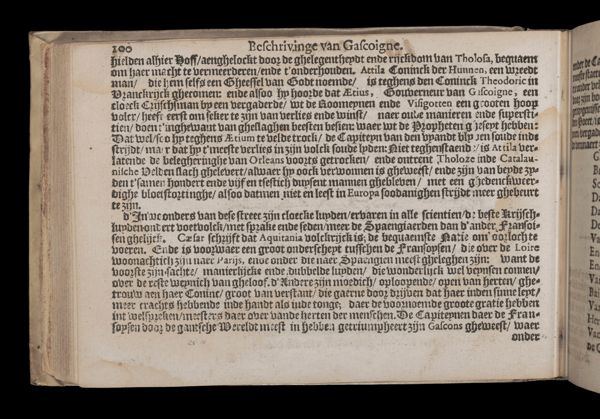 100 Beschrivinge van Gascoigne.
hielden alhier Hoff/ aenghelockt door de ghelegentheydt ende rijckdom van Tholosa, bequaem
om haer macht te vermeerderen/ ende t'onderhouden. Attila Coninck der Hunnen, een wreedt
man/ die hem selfs een Gheessel van Godt noemde/ is teghens den Coninck Theodoric in
Vranckrijck ghecomen: ende alsoo hy hoorde dat Ætius, Gouverneur van Gascoigne, een
cloeck Crijchsman by een vergaderde/ wt de Roomeynen ende Visigotten een grooten hoop
volcx/ heeft eerst om seker te zijn van verlies ende winst/ naer oude manieren ende supersti-
tien/ doen t'inghewant van gheslaghen beesten besien: waer wt de Propheten
Dat wel/ soo hy teghens Ætium te velde trock/ de Capiteyn van den vyandt blyven soude inde
strijdt/ maer dat hy t'meeste verlies in zijn volck soude lyden: Niet teghenstaende/ is Attila ver-
latende de belegheringhe van Orleans voorts getrocken/ ende ontrent Tholoze inde Catalau-
nische Velden slach ghelevert/ alwaer hy oock verwonnen is gheweest/ ende zijn van beyde zy-
den t'samen hondert ende vijf en tsestich duysent mannen ghebleven/ met een ghedenckweer-
dighe bloetstortinghe/ alsoo datmen niet en leest in Europa soodanighen strijdt meer ghebeurt
te zijn.
d'Inwoonders van dese streeck zijn cloecke luyden/ ervaren in alle scientien/ de beste Krijsch-
luyden ont eert voetvolck/ met sprake ende seden meer de Spaengiaerden dan d'ander Fransoi-
sen ghelijck. Cæsar schrijft dat Aquitania volckrijck is/ de bequaemste Natie om oorloch te
voeren. Ende is voorwaer een groot onderscheyt tusschen de Fransoysen/ die over de Loire
woonachtich zijn naer Parijs, ende onder die naer Spaengien meest gheleghen zijn: want de
voorste zijn sachte/ manierlijcke ende dubbelde luyden/ die wonderlijck wel veynsen connen/
over de reste weynich van gheloof. d'Andere zijn moedich/ oploopende/ open van herten/ ghe-
trouw aen haer Coninc/ groot van verstant/ die gaerne door dryven dat haer inden sinne leyt/
meer crachts hebbende inde handt als inde tonge/ daer de voornoemde groote gratie hebben
int welspreken/ meesters daer over vande herten der menschen. De Capiteynen daer de Fran-
soysen door de gantsche Wereldt meest in hebben getriumpheert zijn Gascons gheweest/ waer
onder